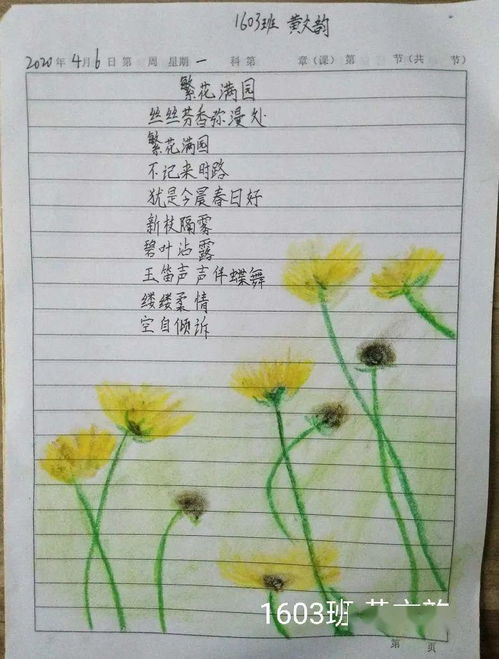 1603班 黄文韵
2020年4月6日第 周 星期一 科第 章(课) 第 节(共 节)
繁花满园
丝丝芳香弥漫处
繁花满园
不记来时路
犹是今晨春日好
新枝隔雾
碧叶沾露
玉笛声声伴蝶舞
缕缕柔情
空自倾诉
1603班
第 页